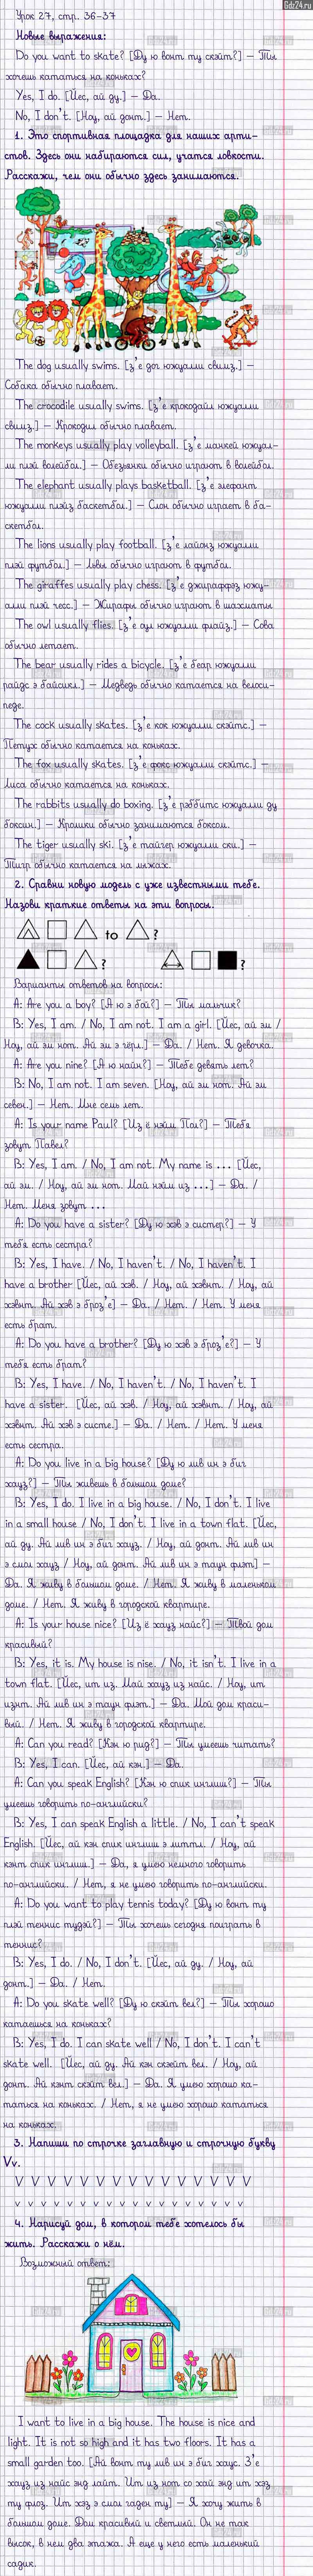 Gdz24.ru
Урок 27, стр. 36-37
Новые выражения:
Do you want to skate? [Ду ю вонт ту скэйт?] — Ты
хочешь кататься на коньках?
Yes, I do. [Йес, ай ду.] — Да.
No, I don't. [Ноу, ай донт.] — Нет.
1. Это спортивная площадка для наших арти-
стов. Здесь они набираются сил, учатся ловкости.
Расскажи, чем они обычно здесь занимаются.
The dog usually swims. [з'е дог южуали свимз.] —
Собака обычно плавает.
The crocodile usually swims. [з'е крокодайл южуали
свимз.] — Крокодил обычно плавает.
The monkeys usually play volleyball. [з'е манкей южуал-
ли плэй волейбол.] — Обезьянки обычно играют в волейбол.
The elephant usually plays basketball. [з'е элефант
южуали плэйз баскетбол.] — Слон обычно играет в ба-
скетбол.
The lions usually play football. [з'е лайонз южуали
плэй футбол.] — Львы обычно играют в футбол.
The giraffes usually play chess. [з'е джираффэз южу-
али плэй чесс.] — Жирафы обычно играют в шахматы.
The owl usually flies. [з'е оул южуали флайз.] — Сова
обычно летает.
The bear usually rides a bicycle. [з'е беар южуали
райдс э байсикл.] — Медведь обычно катается на велоси-
педе.
The cock usually skates. [з'е кок южуали скэйтс.] —
Петух обычно катается на коньках.
The fox usually skates. [з'е фокс южуали скэйтс.] —
Лиса обычно катается на коньках.
The rabbits usually do boxing. [з'е рэббитс южуали ду
боксин.] — Кролики обычно занимаются боксом.
The tiger usually ski. [з'е тайгер южуали ски.] —
Тигр обычно катается на лыжах.
2. Сравни новую модель с уже известными тебе.
Назови краткие ответы на эти вопросы.
to ?
? ?
Варианты ответов на вопросы:
A: Are you a boy? [А ю э бой?] — Ты мальчик?
B: Yes, I am. / No, I am not. I am a girl. [Йес, ай эм /
Ноу, ай эм нот. Ай эм э гёрл.] — Да. / Нет. Я девочка.
A: Are you nine? [А ю найн?] — Тебе девять лет?
B: No, I am not. I am seven. [Ноу, ай эм нот. Ай эм
севен.] — Нет. Мне семь лет.
A: Is your name Paul? [Из ё нэйм Пол?] — Тебя
зовут Павел?
B: Yes, I am. / No, I am not. My name is ... [Йес,
ай эм. / Ноу, ай эм нот. Май нэйм из ...] — Да. /
Нет. Меня зовут ...
A: Do you have a sister? [Ду ю хэв э систер?] — У
тебя есть сестра?
B: Yes, I have. / No, I haven't. / No, I haven't. I
have a brother [Йес, ай хэв. / Ноу, ай хэвнт. / Ноу, ай
хэвнт. Ай хэв э броз'е] — Да. / Нет. / Нет. У меня
есть брат.
A: Do you have a brother? [Ду ю хэв э броз'е?] — У
тебя есть брат?
B: Yes, I have. / No, I haven't. / No, I haven't. I
have a sister. [Йес, ай хэв. / Ноу, ай хэвнт. / Ноу, ай
хэвнт. Ай хэв э систе.] — Да. / Нет. / Нет. У меня
есть сестра.
A: Do you live in a big house? [Ду ю лив ин э биг
хауз?] — Ты живешь в большом доме?
B: Yes, I do. I live in a big house. / No, I don't. I live
in a small house / No, I don't. I live in a town flat. [Йес,
ай ду. Ай лив ин э биг хауз. / Ноу, ай донт. Ай лив ин
э смол хауз / Ноу, ай донт. Ай лив ин э таун флэт] —
Да. Я живу в большом доме. / Нет. Я живу в маленьком
доме. / Нет. Я живу в городской квартире.
A: Is your house nice? [Из ё хауз найс?] — Твой дом
красивый?
B: Yes, it is. My house is nise. / No, it isn't. I live in a
town flat. [Йес, ит из. Май хауз из найс. / Ноу, ит
изнт. Ай лив ин э таун флэт.] — Да. Мой дом краси-
вый. / Нет. Я живу в городской квартире.
A: Can you read? [Кэн ю рид?] — Ты умеешь читать?
B: Yes, I can. [Йес, ай кэн.] — Да.
A: Can you speak English? [Кэн ю спик инглиш?] — Ты
умеешь говорить по-английски?
B: Yes, I can speak English a little. / No, I can't speak
English. [Йес, ай кэн спик инглиш э литтл. / Ноу, ай
кэнт спик инглиш.] — Да, я умею немного говорить
по-английски. / Нет, я не умею говорить по-английски.
A: Do you want to play tennis today? [Ду ю вонт ту
плэй теннис тудэй?] — Ты хочешь сегодня поиграть в
теннис?
B: Yes, I do. / No, I don't. [Йес, ай ду. / Ноу, ай
донт.] — Да. / Нет.
A: Do you skate well? [Ду ю скэйт вел?] — Ты хорошо
катаешься на коньках?
B: Yes, I do. I can skate well / No, I don't. I can't
skate well. [Йес, ай ду. Ай кэн скэйт вел. / Ноу, ай
донт. Ай кэнт скэйт вел.] — Да. Я умею хорошо ка-
таться на коньках. / Нет, я не умею хорошо кататься
на коньках.
3. Напиши по строчке заглавную и строчную букву
Vv.
V V V V V V V V V V V V V V V
v v v v v v v v v v v v v v v v v v
4. Нарисуй дом, в котором тебе хотелось бы
жить. Расскажи о нём.
Возможный ответ:
I want to live in a big house. The house is nice and
light. It is not so high and it has two floors. It has a
small garden too. [Ай вонт ту лив ин э биг хаус. З'е
хауз из найс энд лайт. Ит из нот со хай энд ит хэз
ту флоз. Ит хэз э смол гаден ту] — Я хочу жить в
большом доме. Дом красивый и светлый. Он не так
высок, в нем два этажа. А еще у него есть маленький
садик.